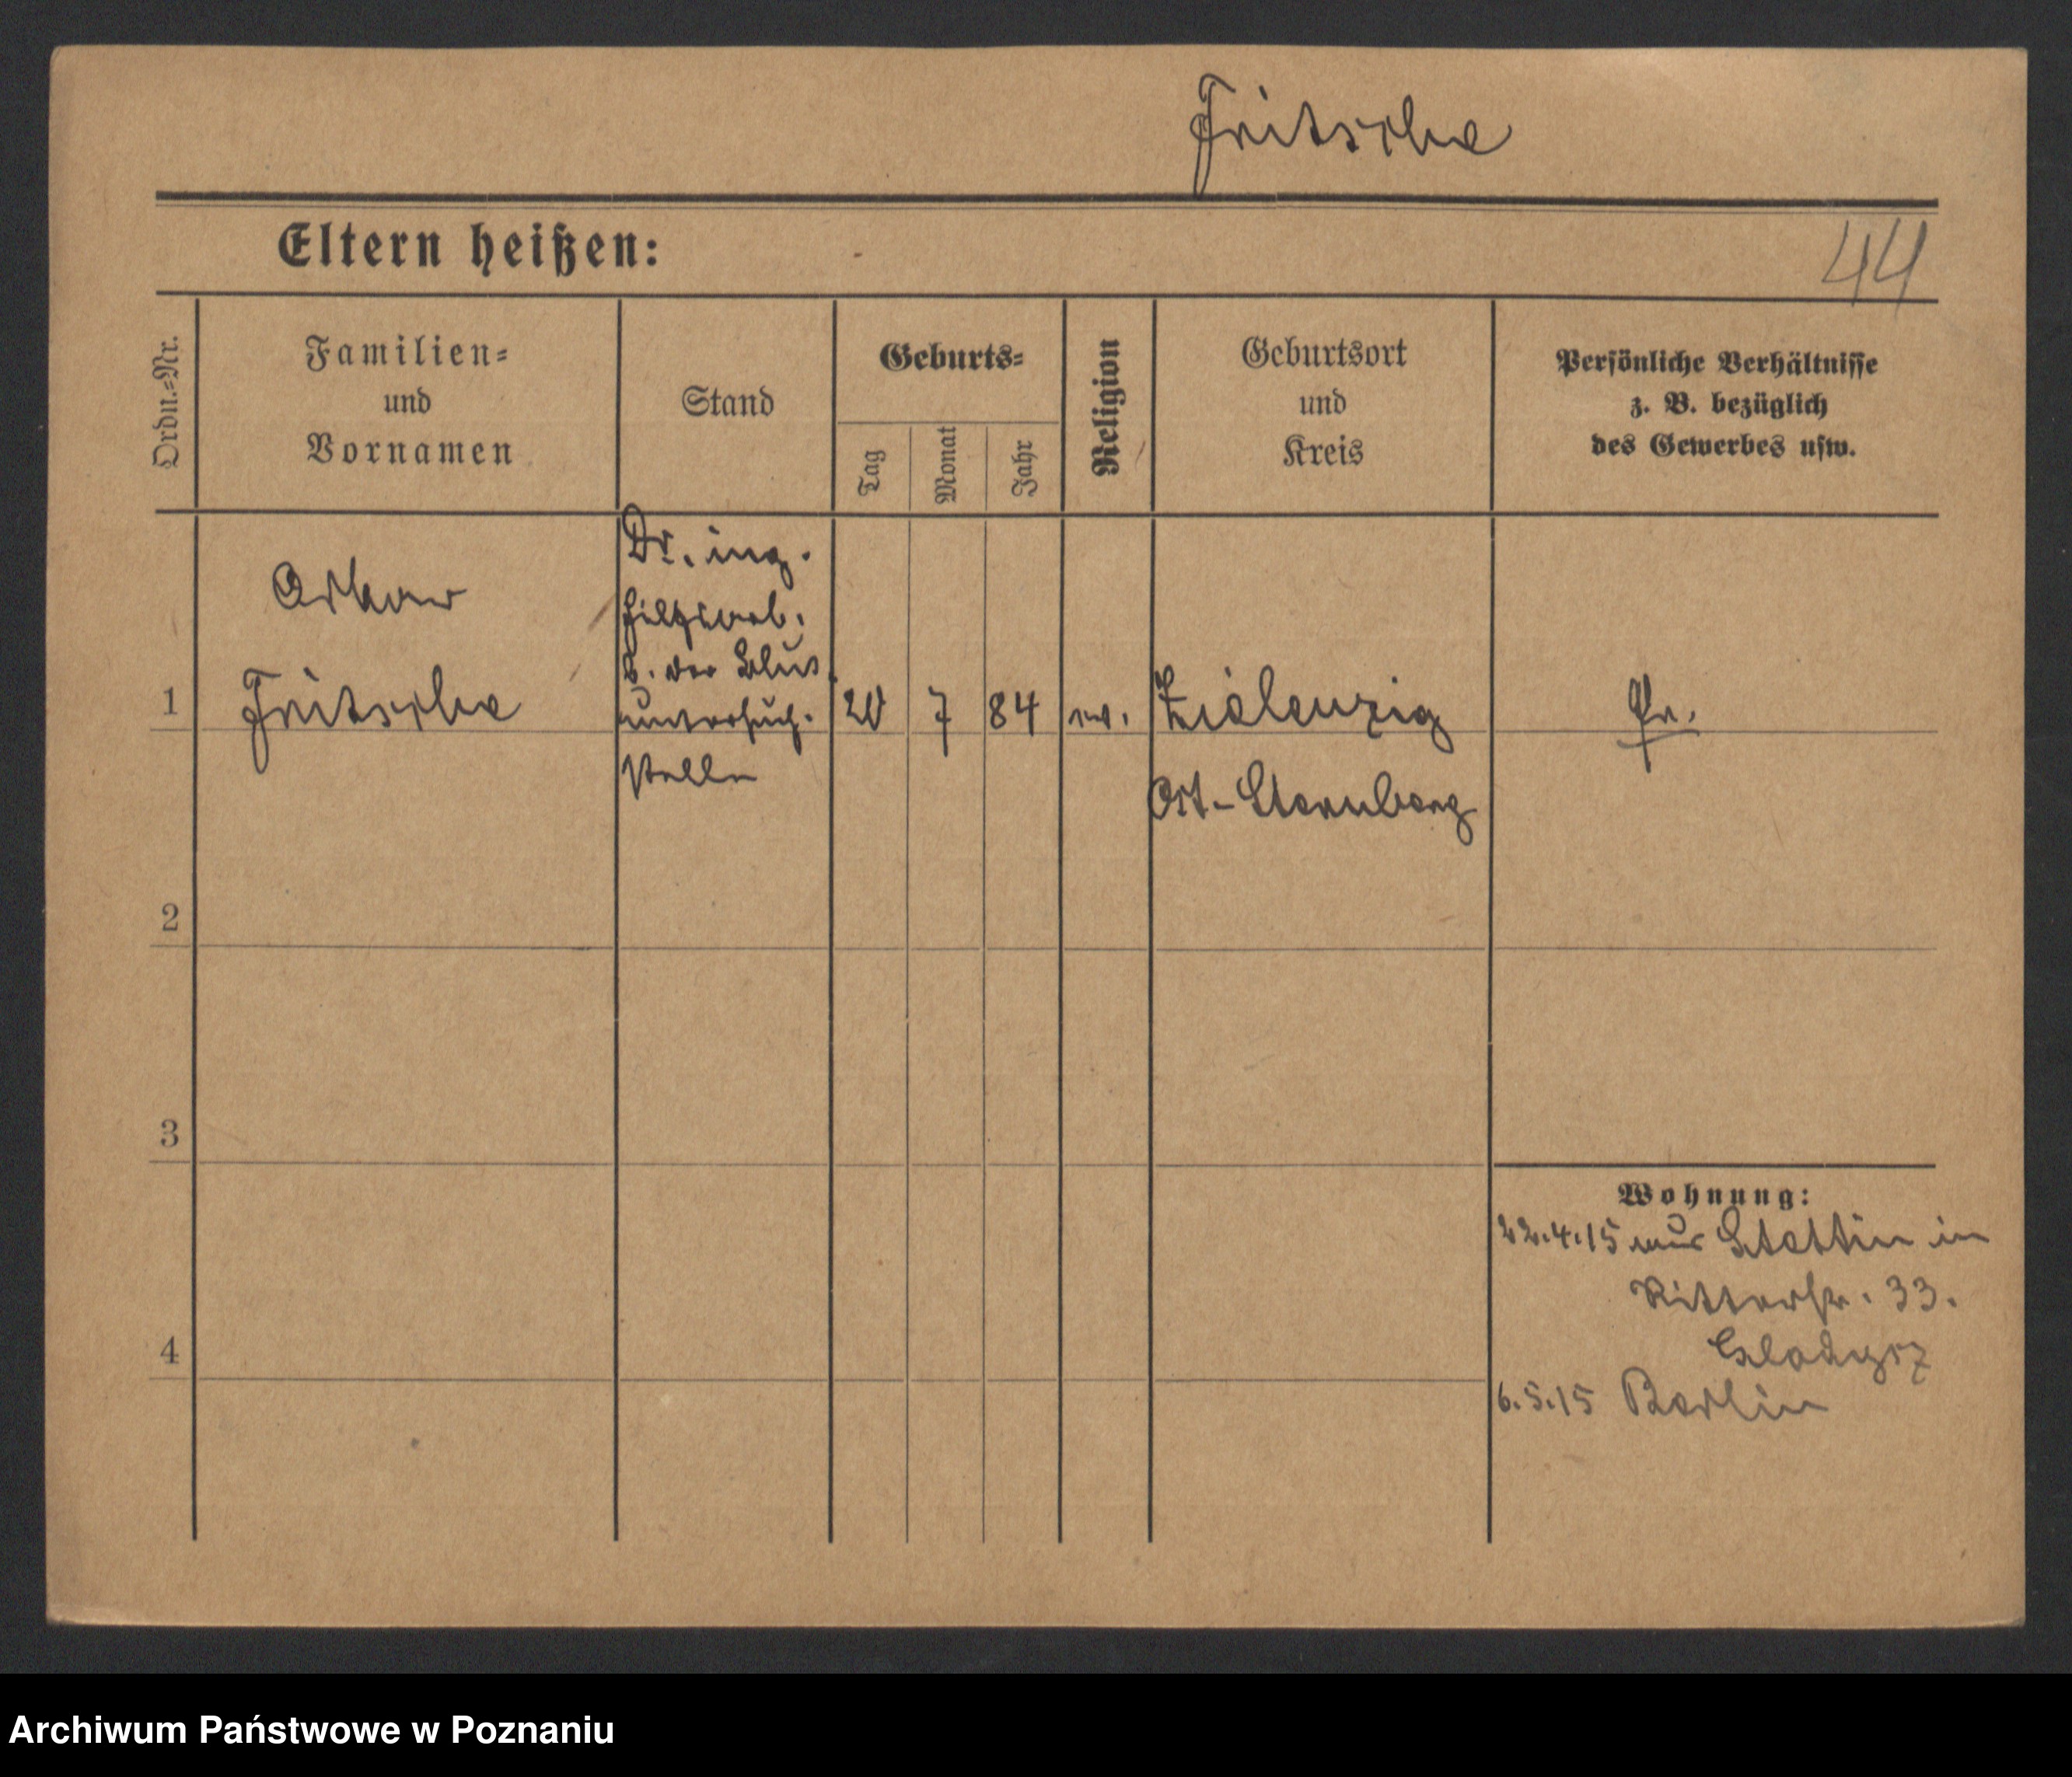 Fritsche
Eltern heißen:
44
Ordn.=Nr.
Familien=
und
Vornamen
Stand
Geburts=
Tag
Monat
Jahr
Religion
Geburtsort
und
Kreis
Persönliche Verhältnisse
z. B. bezüglich
des Gewerbes usw.
1
Oskar
Fritsche
Dr. ing.
hilfsarb.
b. der
untersuch.
stelle
20
7
84
ev.
Zielenzig
Ost-Sternberg
Pr.
2
3
4
Wohnung:
22.4.15 aus Stettin in
Ritterstr. 33.
6.5.15 Berlin
Archiwum Państwowe w Poznaniu